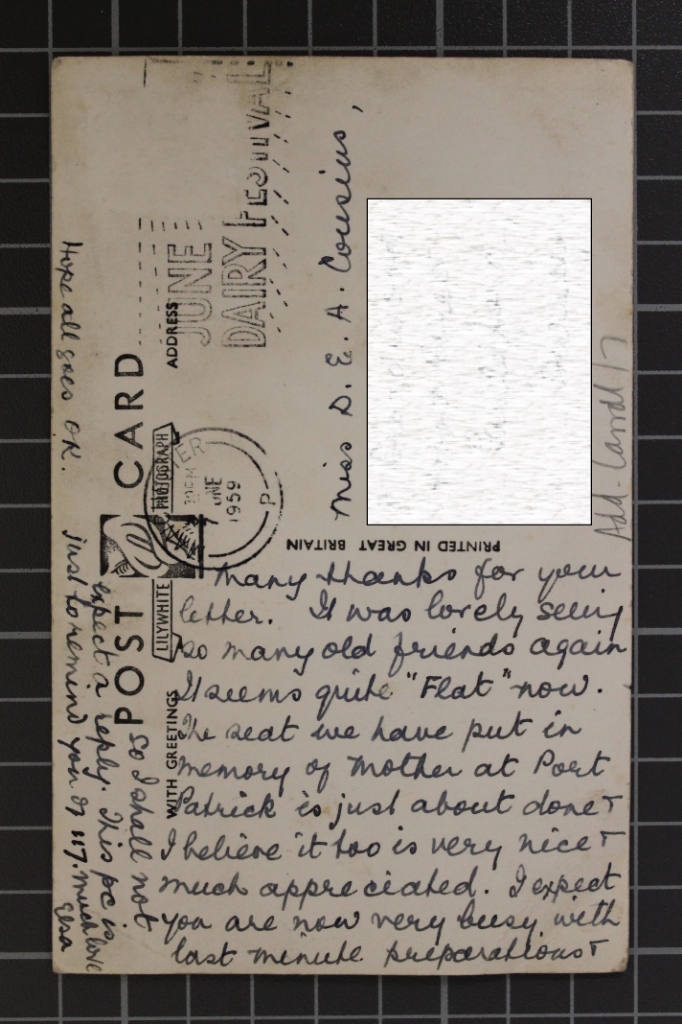 POST CARD
WITH GREETINGS
ADDRESS
LILYWHITE
PHOTOGRAPH
JUNE
DAIRY FESTIVAL
JUNE
1959
P
PRINTED IN GREAT BRITAIN
Miss D. E. A. Cousins,
Add.
Many thanks for your
letter. It was lovely seeing
so many old friends again
It seems quite "Flat" now.
The seat we have put in
memory of Mother at Port
Patrick is just about done +
I believe it too is very nice +
much appreciated. I expect
you are now very busy with
last minute preparations +
so I shall not
expect a reply. This pc is
just to remind you of 117. Much love
Elsa
Hope all goes OK.